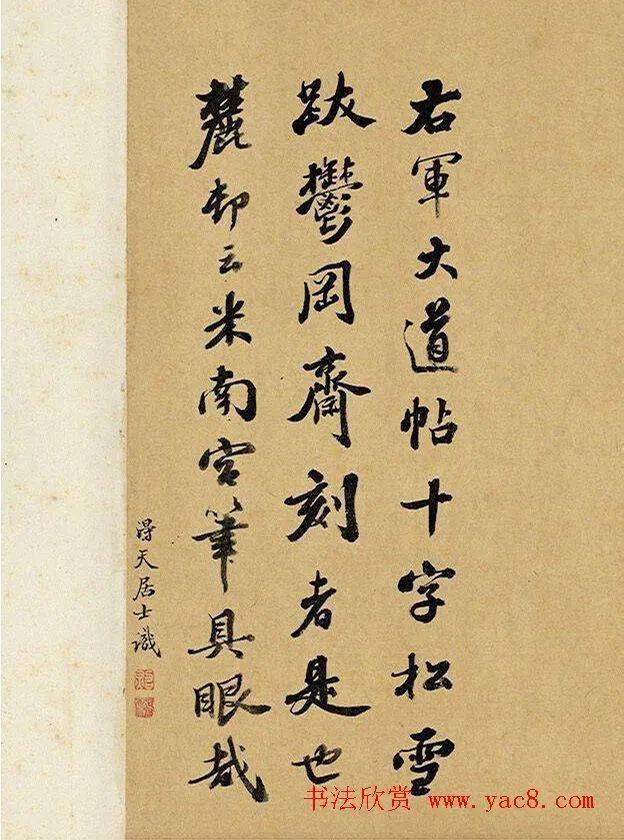 右軍大道帖十字松雪
跋鬱岡齋刻者是也
麓却云米南宮筆具眼哉
得天居士識
书法欣赏 www.yac8.com